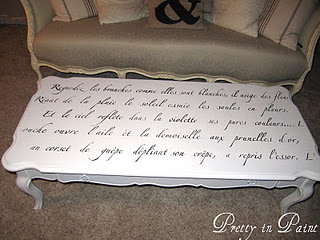 &
Regardez les branches comme elles sont blanches, il neige des fleurs
Riant de la pluie le soleil essuie les saules en pleurs.
Et le ciel reflète dans la violette ses pures couleurs... L
ouche ouvre l'aile et la demoiselle aux prunelles d'or,
au corset de guêpe dépliant son crêpe, a repris l'essor. L
Pretty in Paint